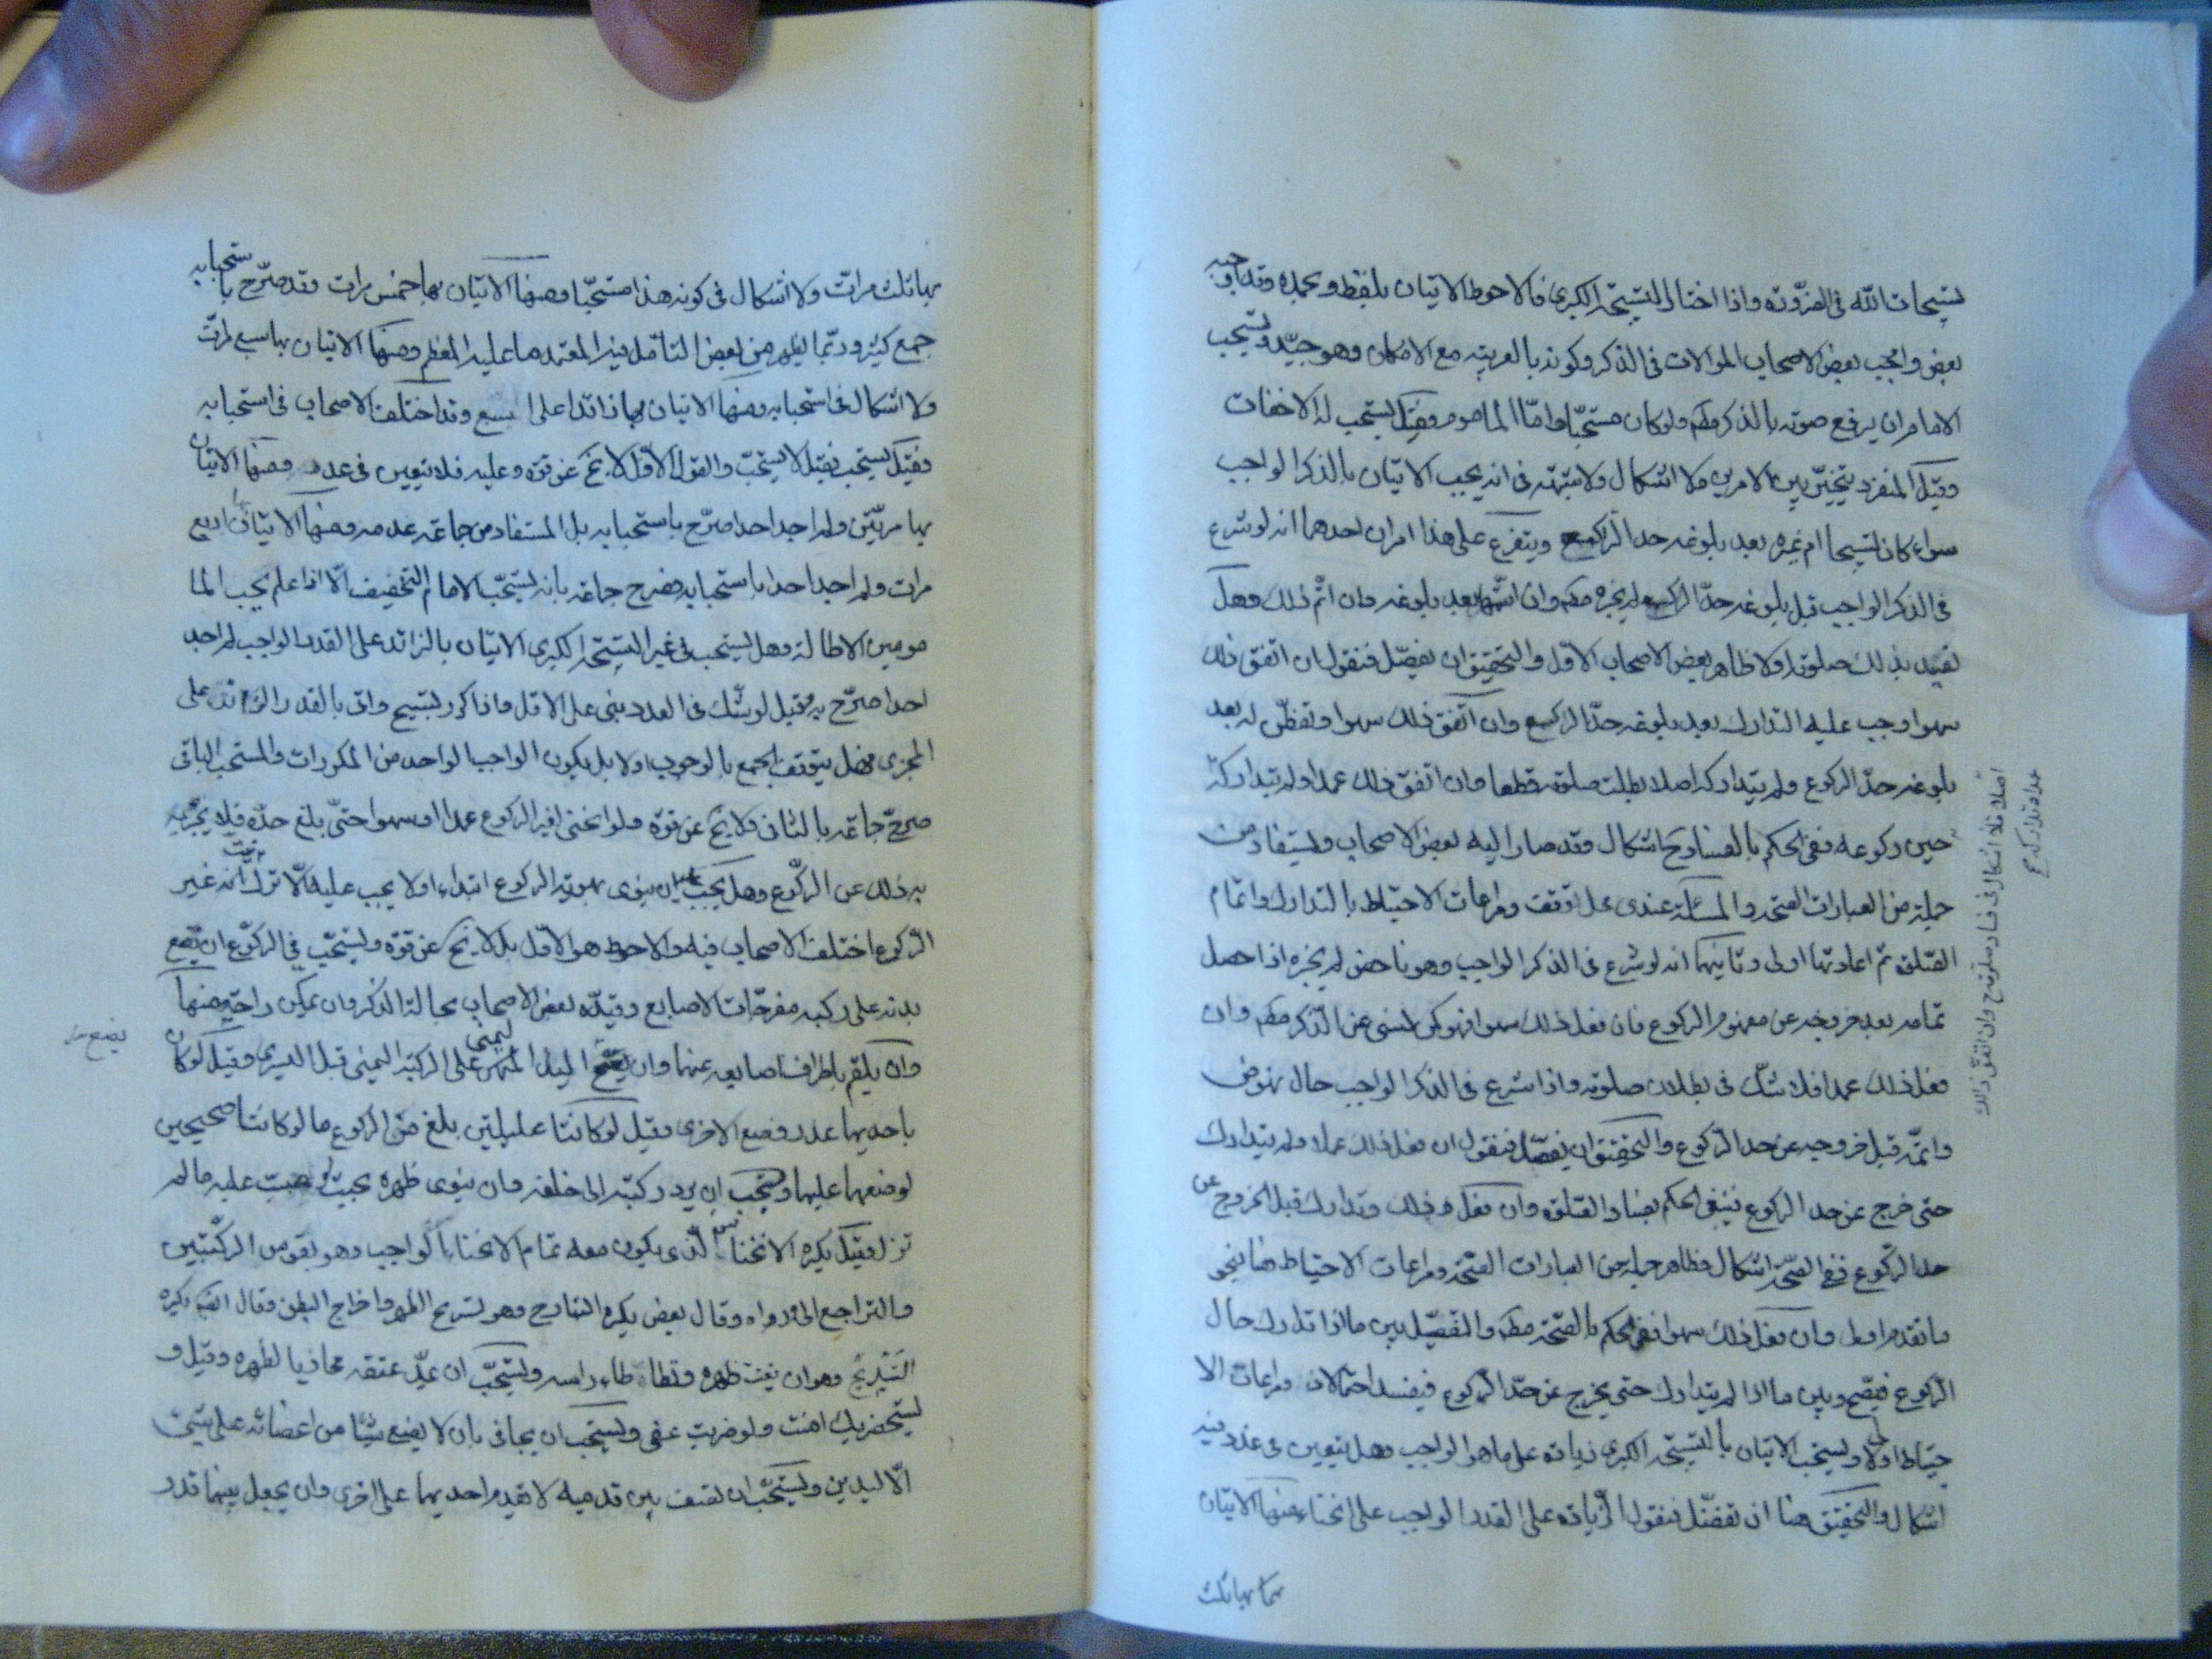 تسبيحات الله في الضرورة واذا اختار التسبيحة الكبرى فالاحوط الاتيان بلفظ وبحمده وقد اوجبه
بعض واوجب بعض الاصحاب الموالات في الذكر وكونه بالعربية مع الامكان وهو جيد ويستحب
الامام ان يرفع صوته بالذكر مطم ولو كان مستحبا واما الماموم فقيل يستحب له الاخفات
وقيل المنفرد يتخير بين الامرين ولا اشكال ولا شبهة في انه يجب الاتيان بالذكر الواجب
سواء كان تسبيحا ام غيره بعد بلوغه حد الركوع ويتفرع على هذا امران احدهما انه لو شرع
في الذكر الواجب قبل بلوغه حد الركوع لم يجزه مطم وان اتمها بعد بلوغه وان اتم ذلك وهل
تفسد بذلك صلوته اولا ظاهر بعض الاصحاب الاول والتحقيق ان يفصل فنقول ان اتفق ذلك
سهوا وجب عليه التدارك بعد بلوغه حد الركوع وان اتفق ذلك سهوا وتفطن له بعد
بلوغه حد الركوع ولم يتداركه اصلا بطلت صلوته قطعا وان اتفق ذلك عمدا ولم يتداركه
حين ركوعه ففي الحكم بالفساد ح اشكال وقد صار اليه بعض الاصحاب ويستفاد من
جملة من العبارات الصحة والمسئلة عندي محل توقف ومراعات الاحتياط بالتدارك واتمام
الصلوة ثم اعادتها اولى وثانيهما انه لو شرع في الذكر الواجب وهو ناهض لم يجزه اذا حصل
تمامه بعد خروجه عن مفهوم الركوع فان فعل ذلك سهوا فهو كمن نسى عن الذكر مطم وان
فعل ذلك عمدا فلا شك في بطلان صلوته واذا شرع في الذكر الواجب حال نهوضه
واتمه قبل خروجه عن حد الركوع والتحقيق ان يفصل فنقول ان فعل ذلك عمدا ولم يتدارك
حتى خرج عن حد الركوع فينبغي الحكم بفساد الصلوة وان فعل ذلك وتدارك قبل الخروج عن
حد الركوع ففي الصحة اشكال فظاهر جملة من العبارات الصحة ومراعات الاحتياط هنا بنحو
ما تقدم اولى وان فعل ذلك سهوا ففي الحكم بالصحة مطم والتفصيل بين ما اذا تدارك حال
الركوع فيصح وبين ما اذا لم يتدارك حتى يخرج عن حد الركوع فيفسد احتمالان ومراعات الا
حتياط اولى ويستحب الاتيان بالتسبيحة الكبرى زيادة على ما هو الواجب وهل يتعين في عدد فيه
اشكال والتحقيق هنا ان تفصل فنقول الزيادة على القدر الواجب على انحاء منها الاتيان
بها ثلث
اصلا فلا اشكال في فساد صلوته ح وان اتفق ذلك
عمدا وتداركه ح
بها ثلث مرات ولا اشكال في كونه هذا مستحبا ومنها الاتيان بها خمس مرات وقد صرح باستحبابه
جمع كثير وربما يظهر من بعض التامل فيه المعتمد ما عليه المعظم ومنها الاتيان بها سبع مرات
ولا اشكال في استحبابه ومنها الاتيان بها زائدا على السبع وقد اختلف الاصحاب في استحبابه
فقيل يستحب وقيل لا يستحب والقول الاول لا يخ عن قوة وعليه فلا يتعين في عدد ومنها الاتيان
بها مرتين ولم اجد احدا صرح باستحبابه بل المستفاد من جماعة عدمه ومنها الاتيان اربع
مرات ولم اجد احدا باستحبابه صرح جماعة بانه يستحب للامام التخفيف الا اذا علم يحب الما
مومين الاطالة وهل يستحب في غير التسبيحة الكبرى الاتيان بالزائد على القدر الواجب لم اجد
احدا صرح به وقيل لو شك في العدد بنى على الاقل واذا كرر تسبيح واتى بالقدر الزائد على
المجزي فهل يتوقف الجمع بالوجوب اولا بل يكون الواجب الواحد من المكررات والمستحب الباقي
صرح جماعة بالثاني ولا يخ عن قوة ولو انحنى لغير الركوع عمدا او سهوا حتى بلغ حده فلا يجزيه
به ذلك عن الركوع وهل يجب عليه ان ينوي بهويه الركوع ابتداء اولا يجب عليه الا ترك نية غير
الركوع اختلف الاصحاب فيه والاحوط هو الاول بل لا يخ عن قوة ويستحب في الركوع ان يضع
يديه على ركبتيه مفرجات الاصابع وقيده بعض الاصحاب بحالة الذكر وان يمكن راحتيه منهما
وان يلقم باطراف اصابعه عنهما وان يضع اليد اليمنى على الركبة اليمنى قبل اليسرى وقيل لو كان
باحديهما عذر وضع الاخرى وقيل لو كانتا عليلتين بلغ من الركوع ما لو كانتا صحيحتين
لوضعهما عليها ويستحب ان يرد ركبتيه الى خلفه وان يسوي ظهره بحيث لو صبت عليه ماء لم
تزل وقيل يكره الانخناس الذي يكون معه تمام الانحناء الواجب وهو تقويس الركبتين
والتراجع الى وراء وقال بعض يكره التبازخ وهو تسريح الظهر واخراج البطن وقال ايضا ويكره
التدبيح وهو ان يقبب ظهره وتطاطاء راسه ويستحب ان يمد عنقه محاذيا لظهره وقيل و
يستحضر بك امنت ولو ضربت عنقي ويستحب ان يجافي بان لا يضع شيئا من اعضائه على شئ
الا اليدين ويستحب ان يقف بين قدميه لا تقدم احديهما على الاخرى وان يجعل بينهما قدر
يضع